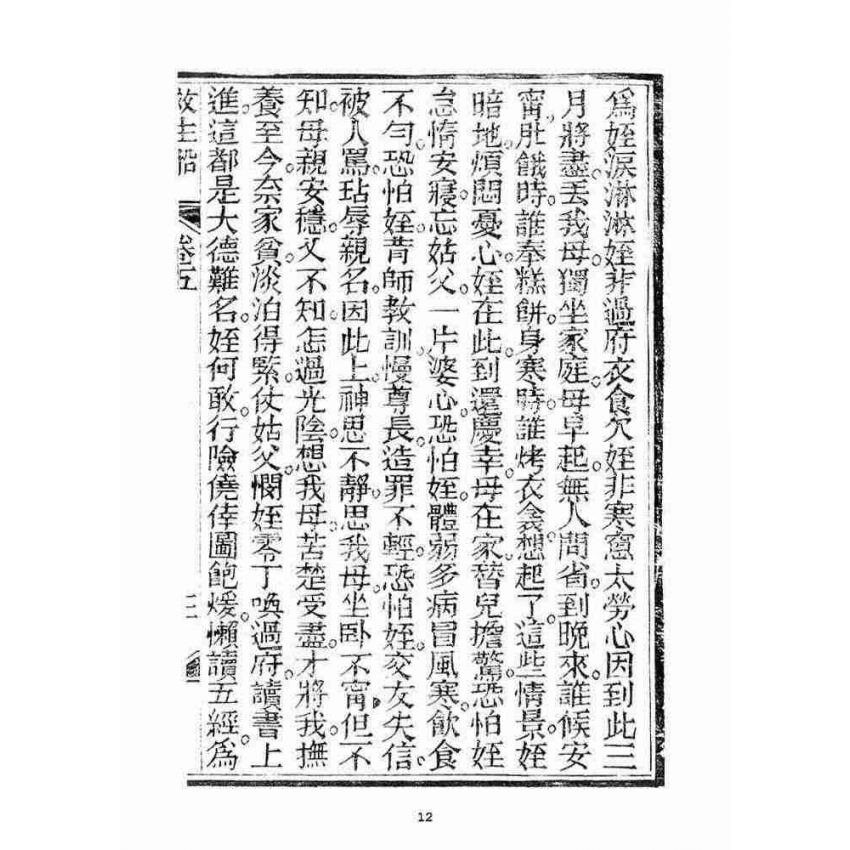 爲姪淚淋淋。姪非過府衣食欠。姪非寒窗太勞心。因到此三
月將盡。丟我母獨坐家庭。母早起無人問省。到晚來誰候安
甯。肚餓時。誰奉糕餅。身寒時。誰烤衣衾。想起了這些情景。姪
暗地煩悶憂心。姪在此到還慶幸。母在家替兒擔驚。恐怕姪
怠惰安寢。忘姑父一片婆心。恐怕姪體弱多病。冒風寒飲食
不勻。恐怕姪背師教訓。慢尊長造罪不輕。恐怕姪交友失信。
被人罵玷辱親名。因此上神思不靜。思我母坐卧不甯。但不
知母親安穩。又不知怎過光陰。想我母苦楚受盡。才將我撫
養至今。奈家貧淡泊得緊。仗姑父憫姪零丁。喚過府讀書上
進。這都是大德難名。姪何敢行險僥倖。圖飽煖懶讀五經。爲
救生船 卷五
12